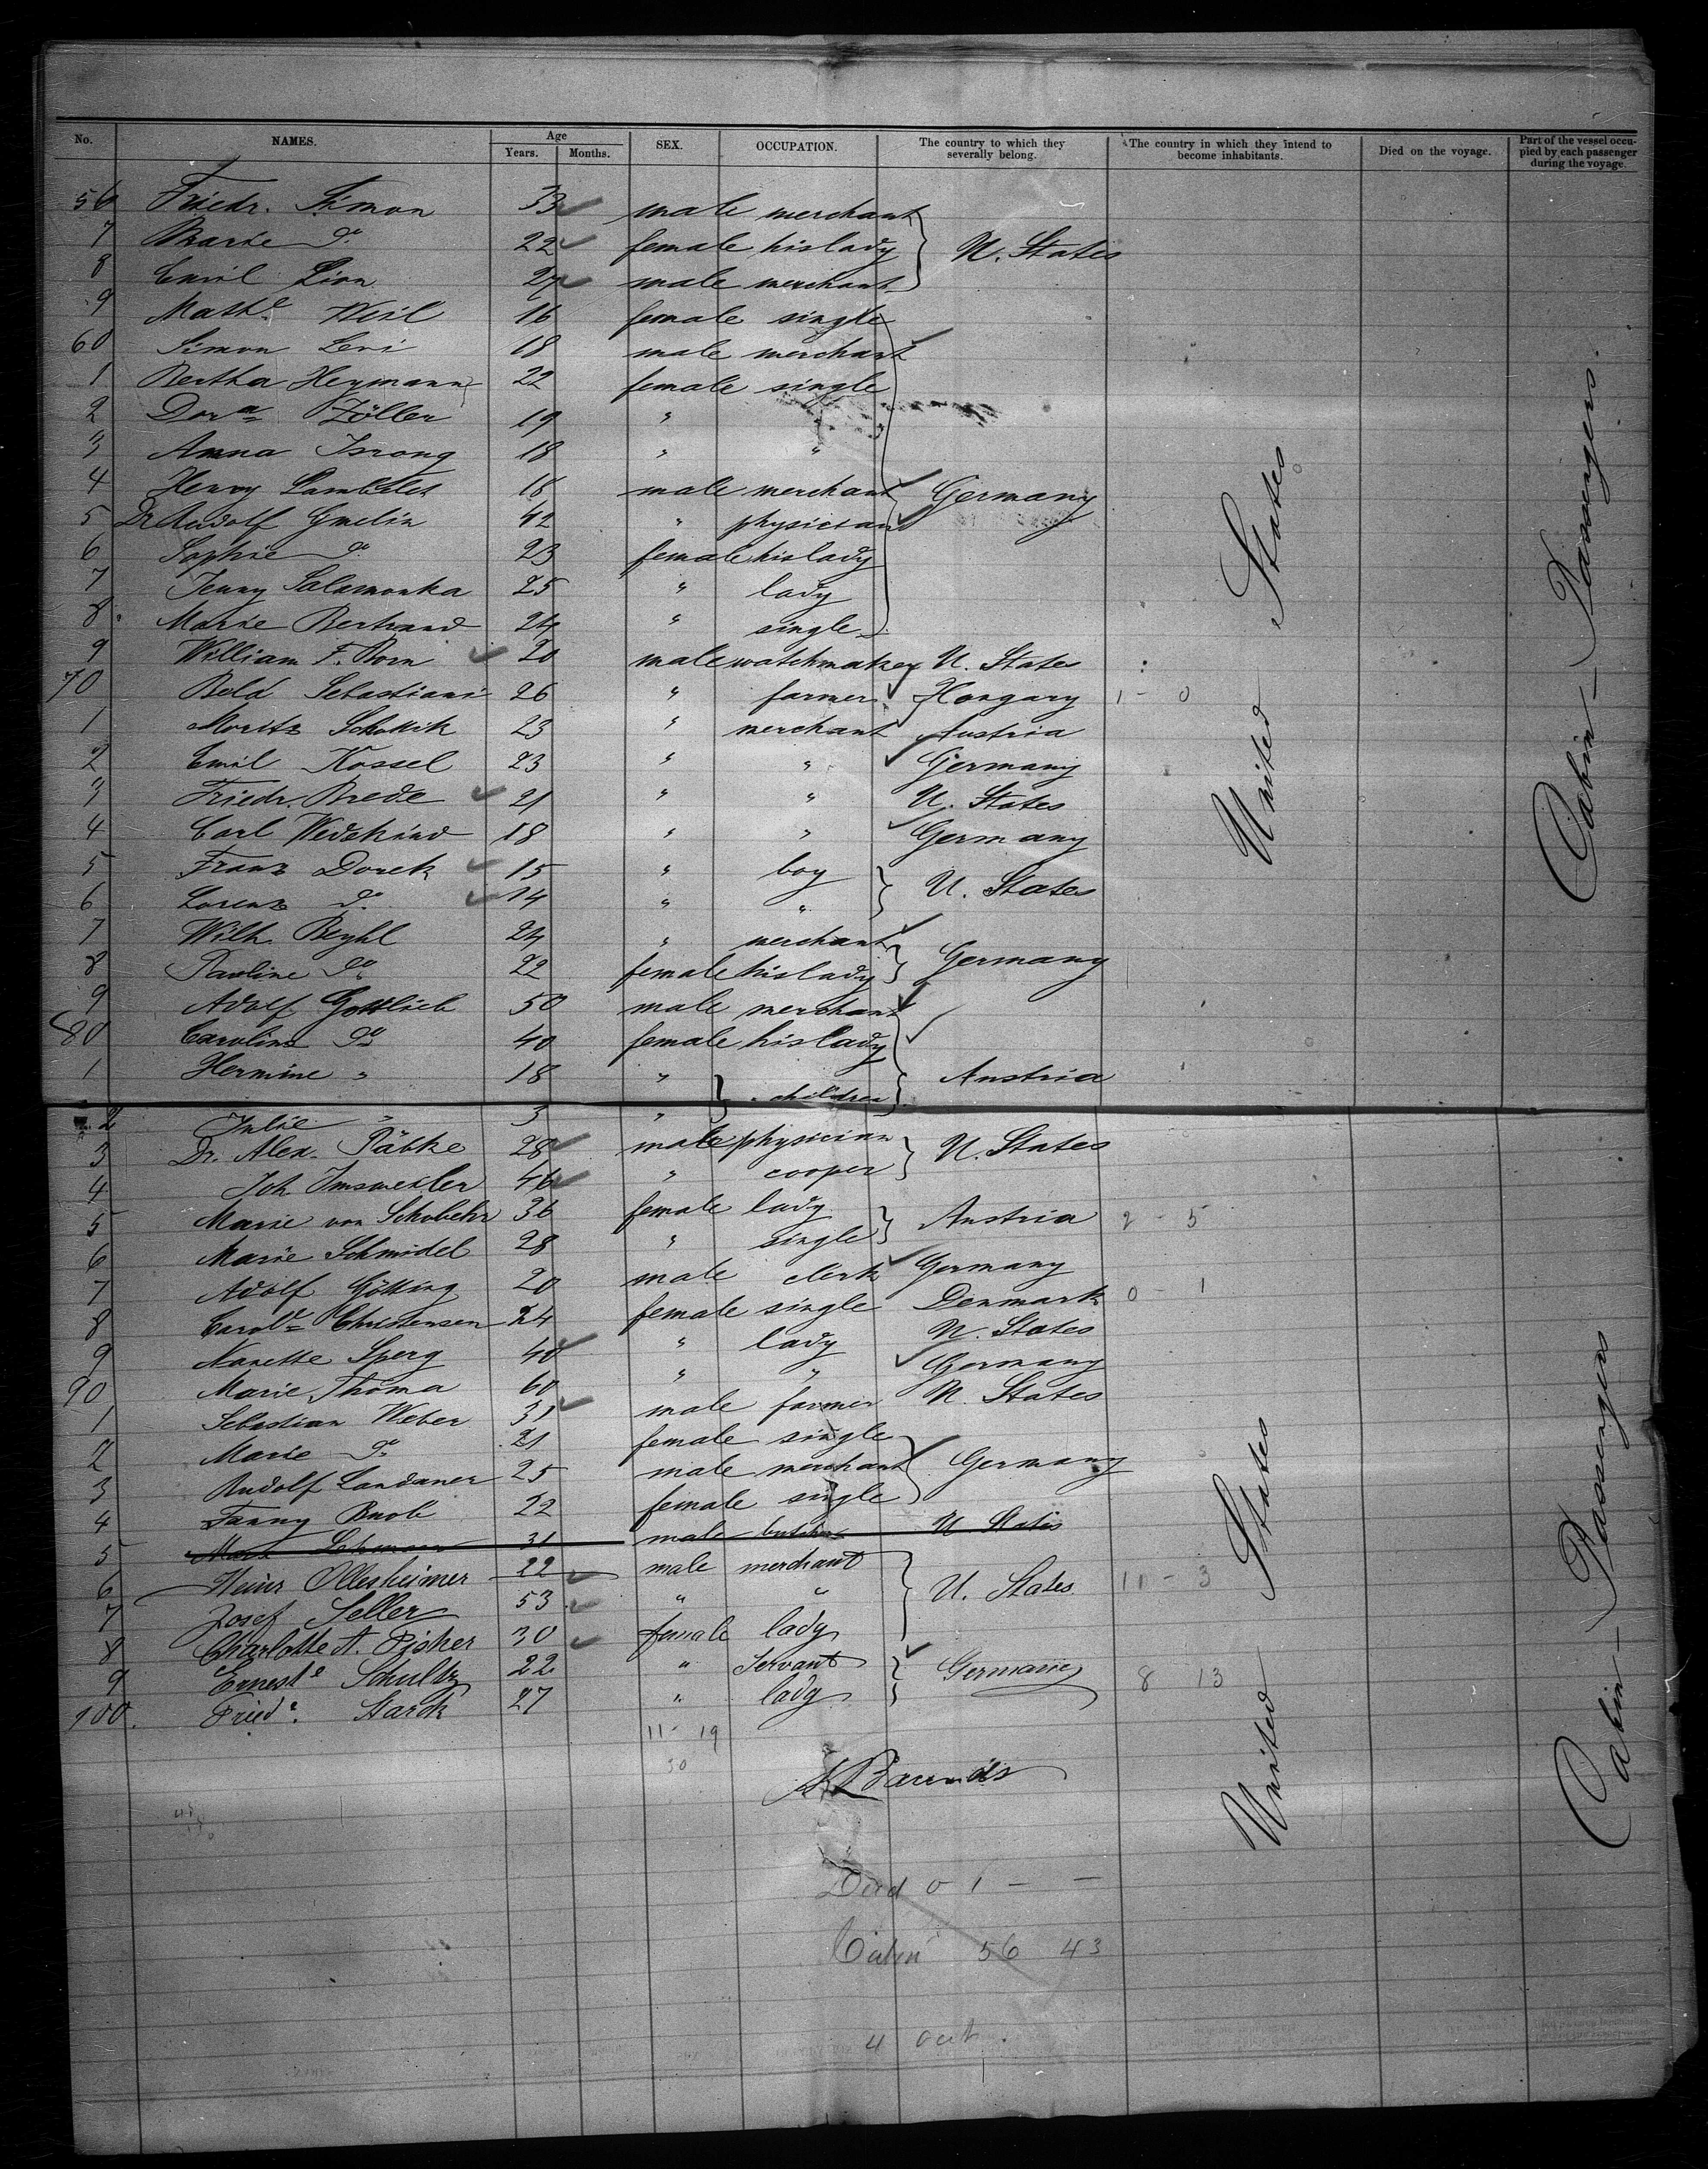 No. NAMES. Age Years. Months. SEX. OCCUPATION. The country to which they severally belong. The country in which they intend to become inhabitants. Died on the voyage. Part of the vessel occupied by each passenger during the voyage.
56 Friedr. Simon 33 male merchant
7 Marie do 22 female his lady U. States
8 Emil Lion 27 male merchant
9 Mathe Weil 16 female single
60 Simon Levi 18 male merchant
1 Bertha Heymann 22 female single
2 Dora Zöller 19 " "
3 Anna Isrong 18 " "
4 Henry Lambelet 18 male merchant Germany
5 Dr Rudolf Gmelin 42 " physician
6 Sophie do 23 female his lady
7 Jenny Salamonka 25 " lady
8 Marie Bertrand 24 " single
9 William F. Born 20 male watchmaker U. States
70 Bela Sebastiani 26 " farmer Hongary 1 - 0
1 Moritz Schollik 23 " merchant Austria
2 Emil Kossel 23 " " Germany
3 Friedr. Brede 21 " " U. States
4 Carl Wedekind 18 " " Germany
5 Franz Dorek 15 " boy
6 Lorenz do 14 " " U. States
7 Wilh. Beyhl 24 " merchant
8 Pauline do 22 female his lady Germany
9 Adolf Gottlieb 50 male merchant
80 Caroline do 40 female his lady
1 Hermine " 18 " children Austria
2 Julie " 3 "
3 Dr. Alex. Päbke 28 male physician U. States
4 Joh Imsweiler 46 " cooper
5 Marie von Schobeln 36 female lady Austria 2 - 5
6 Marie Schmidel 28 " single
7 Adolf Götting 20 male clerk Germany
8 Carole Christensen 24 female single Denmark 0 - 1
9 Nanette Sperg 40 " lady U. States
90 Marie Thoma 60 " " Germany
1 Sebastian Weber 31 male farmer U. States
2 Marie do 21 female single
3 Rudolf Landauer 25 male merchant Germany
4 Fanny Knob 22 female single
5 Marx Lehmann 31 male butcher U States
6 Heinr Ollesheimer 22 male merchant
7 Josef Seller 53 " " U. States 11 - 3
8 Charlotte A. Fisher 30 female lady
9 Erneste Schultz 22 " Servant Germany 8 13
100. Friede. Starck 27 " lady
United States
Cabin - Passengers
United States
Cabin - Passengers
11 - 19
30
Died 0 1 - -
Cabin 56 43
4 out.